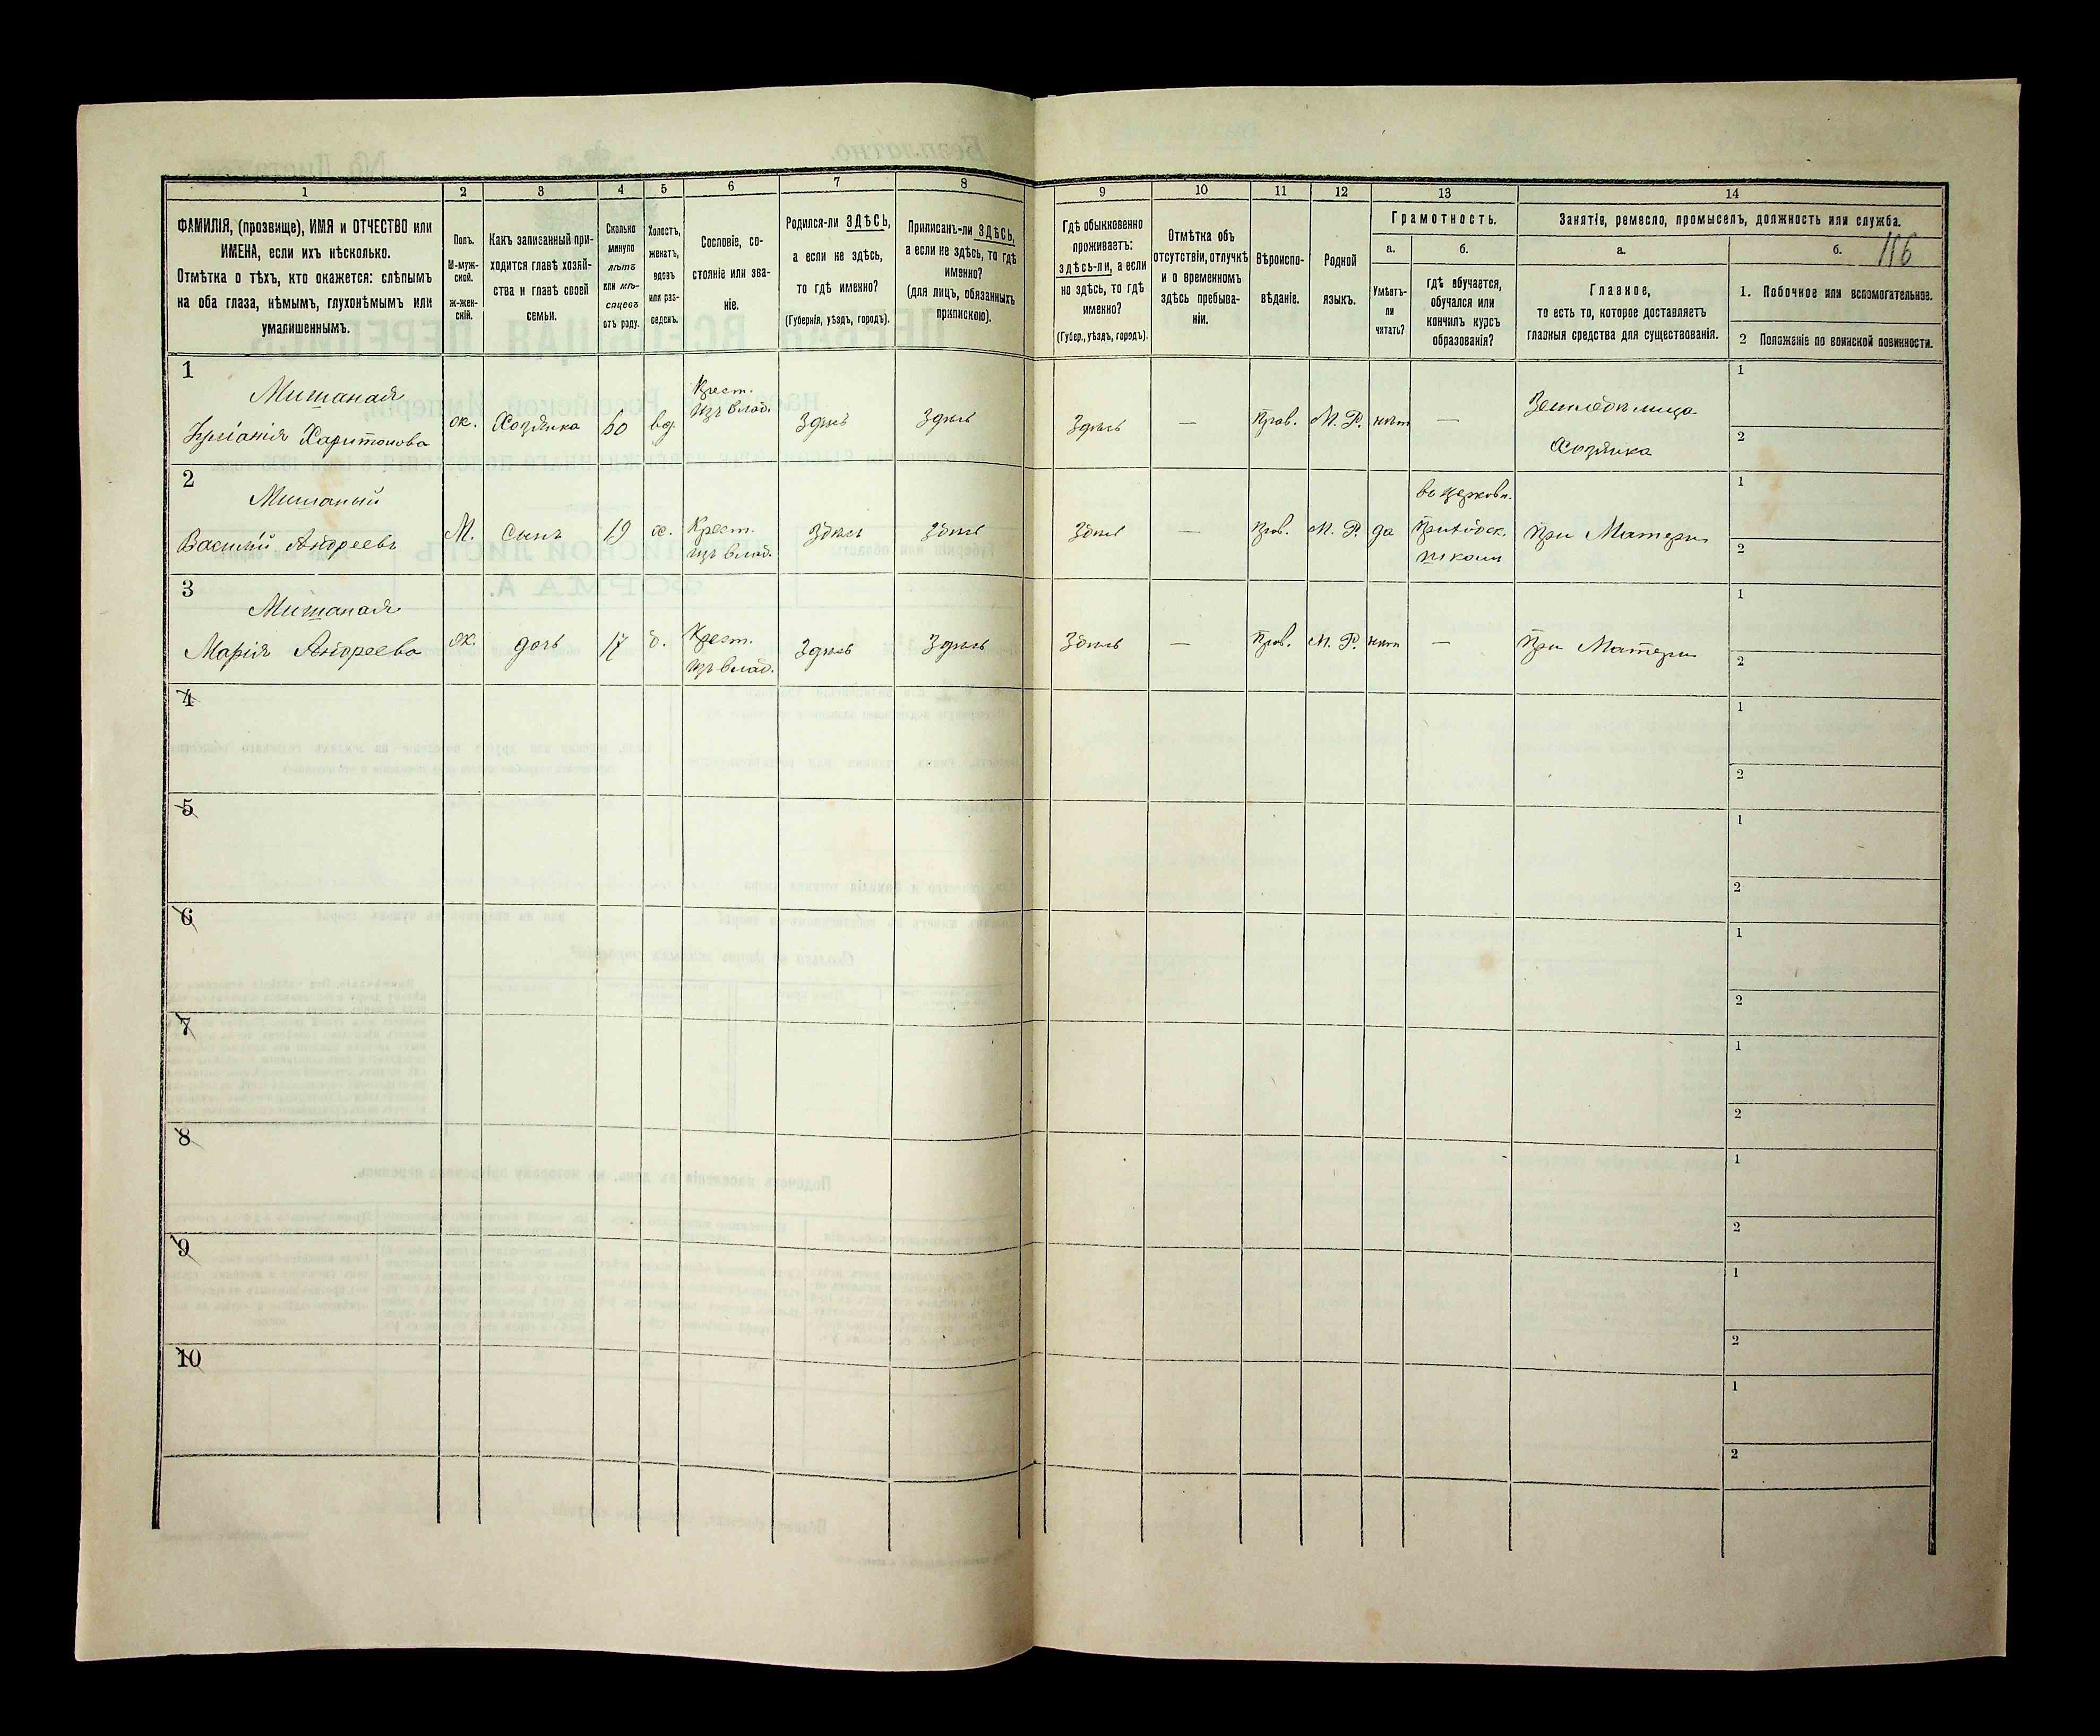 1 2 3 4 5 6 7 8 9 10 11 12 13 14
ФАМИЛІЯ, (прозвище), ИМЯ и ОТЧЕСТВО или
ИМЕНА, если ихъ нѣсколько.
Отмѣтка о тѣхъ, кто окажется: слѣпымъ
на оба глаза, нѣмымъ, глухонѣмымъ или
умалишеннымъ.
Полъ.
М-муж-
ской.
Ж-жен-
скій.
Какъ записанный при-
ходится главѣ хозяй-
ства и главѣ своей
семьи.
Сколько
минуло
лѣтъ
или мѣ-
сяцевъ
отъ роду.
Холостъ,
женатъ,
вдовъ
или раз-
веденъ.
Сословіе, со-
стояніе или зва-
ніе.
Родился-ли ЗДѢСЬ,
а если не здѣсь,
то гдѣ именно?
(Губернія, уѣздъ, городъ).
Приписанъ-ли ЗДѢСЬ,
а если не здѣсь, то гдѣ
именно?
(для лицъ, обязанныхъ
припискою).
Гдѣ обыкновенно
проживаетъ:
здѣсь-ли, а если
не здѣсь, то гдѣ
именно?
(Губер., уѣздъ, городъ).
Отмѣтка объ
отсутствіи, отлучкѣ
и о временномъ
здѣсь пребыва-
ніи.
Вѣроиспо-
вѣданіе.
Родной
языкъ.
Грамотность.
а.
Умѣетъ-
ли
читать?
б.
гдѣ обучается,
обучался или
кончилъ курсъ
образованія?
Занятіе, ремесло, промыселъ, должность или служба.
а.
Главное,
то есть то, которое доставляетъ
главныя средства для существованія.
б. 116
1. Побочное или вспомогательное.
2 Положеніе по воинской повинности.
1
Мишаная
Харитонова
ж. Хозяйка 60 вд.
Крест.
изъ влад.
Здѣсь Здѣсь Здѣсь — Прав. М. Р. нѣтъ —
Хозяйка
1
2
2
Мишаный
Василій Андреевъ
М. Сынъ 19 х.
Крест.
изъ влад.
Здѣсь Здѣсь Здѣсь — Прав. М. Р. да
въ церковн.
Приходск.
школѣ
При Матери
1
2
3
Мишаная
Марія Андреева
ж. дочь 17 д.
Крест.
изъ влад.
Здѣсь Здѣсь Здѣсь — Прав. М. Р. нѣтъ —
При Матери
1
2
4
1
2
5
1
2
6
1
2
7
1
2
8
1
2
9
1
2
10
1
2